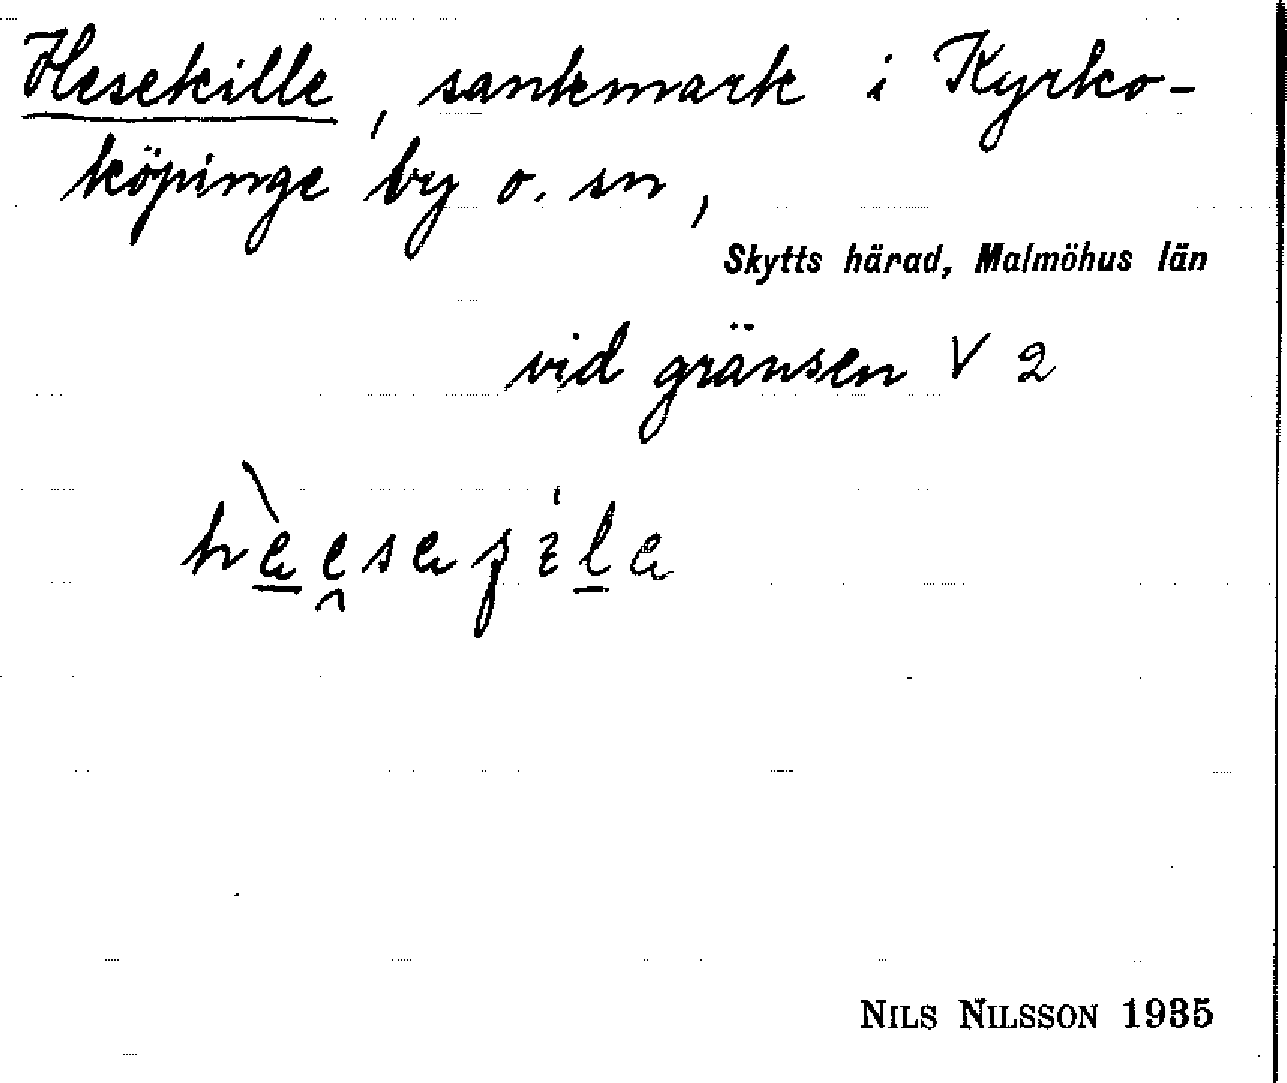 Hesekille, sankmark i Kyrko-
köpinge by o. sn,
Skytts härad, Malmöhus län
vid gränsen V 2
NILS NILSSON 1935